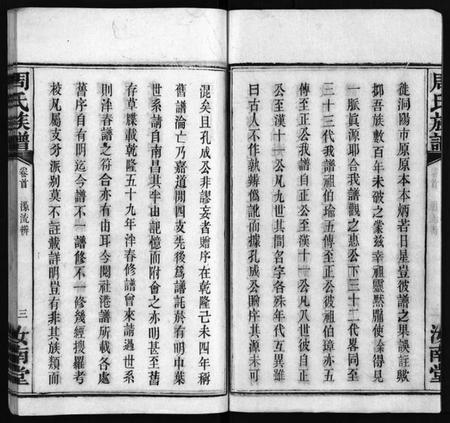 周氏族譜
徙洞陽市原原本本炳若日星豈彼譜之果誤註歟
抑吾族數百年未破之業茲幸祖靈默牖使余得見
一脈眞源耶合我譜觀之惠公下三十二代畧同至
三十三代我譜祖伯瑜五傳至正公彼譜祖伯璋亦五
傳至正公我譜自正公至漢十一公凡八世彼自正
公至漢十一公凡九世其間名字各殊年代互異雖
曰古人不作孰辨僞訛而據孔成公贈序其源未可
混矣且孔成公非謬妄者贈序在乾隆己未四年稱
舊譜淪亡乃嘉道開四支先後爲譜託於有明中葉
世系請自南昌其半由記憶而附會之亦明甚至舊
存草牒載乾隆五十九年泮春修譜曾來請過世系
則泮春譜之符合亦有由耳今閱社港譜所載各處
舊序自有明迄今譜不一譜修不一修幾經搜羅考
核凡屬支分派別莫不註載詳明豈有非其族類而
周氏族譜
卷首
源流辨
三
汝南堂
汝南堂